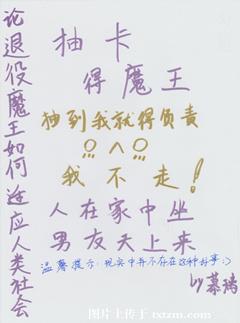 论退役魔王如何适应人类社会
抽卡
得魔王
抽到我就得负责
我不走!
人在家中坐
男友天上来
温馨提示:现实中并不存在这种好事:)
by慕璃
图片上传于 txtzm.com